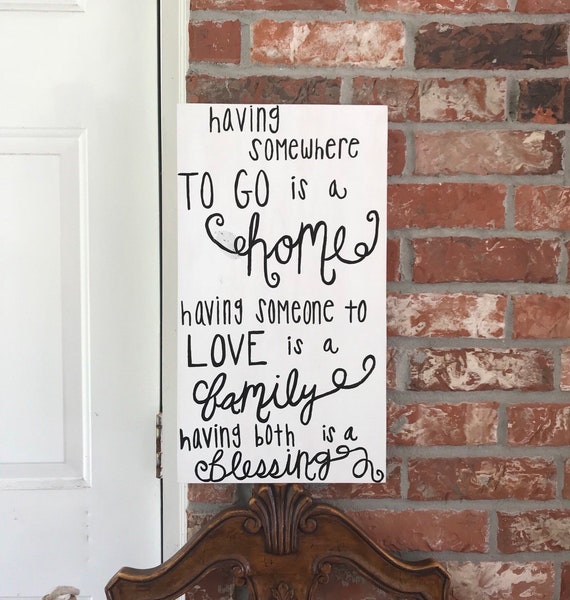 having
somewhere
TO GO is a
home
having someone to
LOVE is a
family
having both is a
blessing